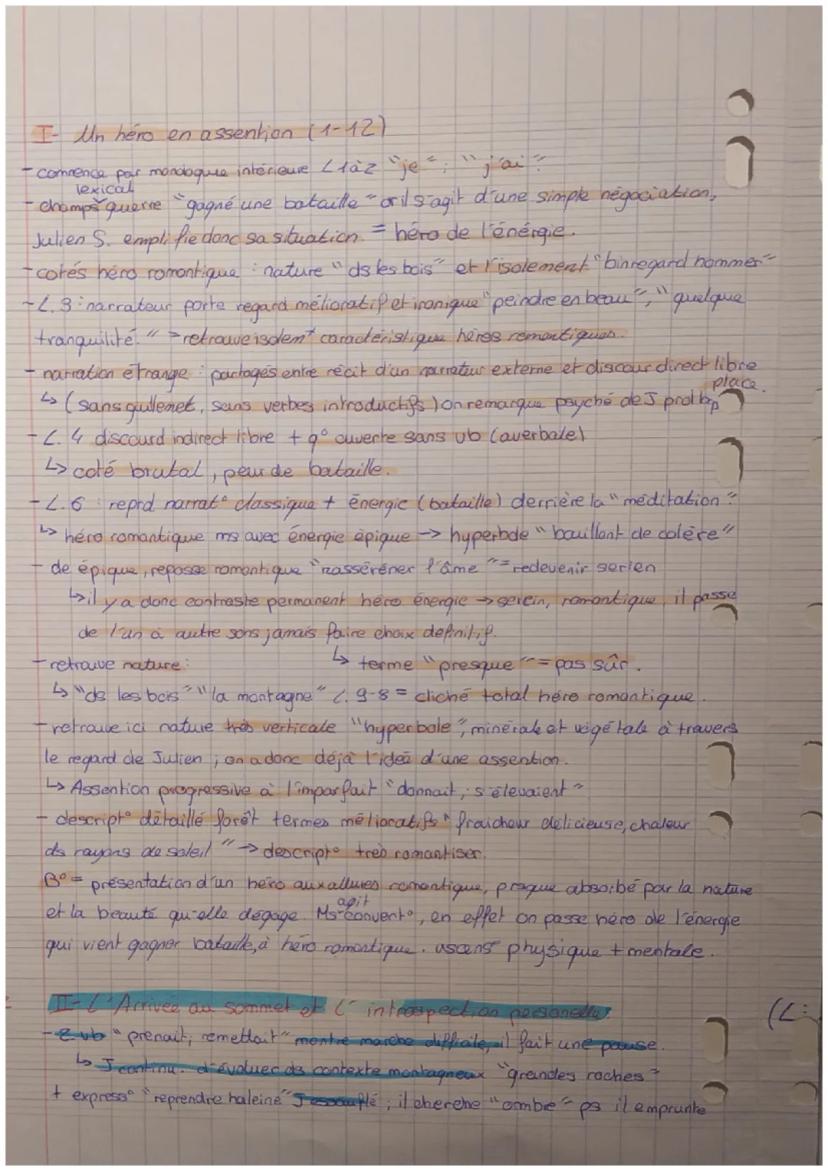 I- Un héro en assention (1-12)
- commence par monologue intérieure L1à2 "je" ; "j'ai"
lexical
- champs guerre "gagné une bataille" or il s'agit d'une simple négociation,
Julien S. emplifie donc sa situation. = héro de l'énergie.
- cotés héro romantique : nature "ds les bois" et l'isolement "
- L.3 : narrateur porte regard mélioratif et ironique "peindre en beau", "quelque
tranquilité." => retrouve isolemt caractéristique héros romantiques.
- narration étrange : partagés entre récit d'un narrateur externe et discour direct libre
place.
↳ (sans guillemet, sans verbes introductifs) on remarque psyché de J prd bp
- L. 4 discourd indirect libre + q° ouverte sans vb (averbale)
↳ coté brutal, peur de bataille.
- L.6 : reprd narrat° classique + énergie (bataille) derrière la "méditation"
↳ héro romantique ms avec énergie épique -> hyperbole "bouillant de colère"
- de épique, repasse romantique "rasséréner l'âme" = redevenir serien
↳ il y a donc contraste permanent héro énergie -> serein, romantique, il passe
de l'un à autre sans jamais faire choix définitif.
- retrouve nature : ↳ terme "presque" = pas sûr.
↳ "ds les bois" "la montagne" L. 9-8 = cliché total héro romantique.
- retrouve ici nature très verticale "hyperbole", minérale et végétale à travers
le regard de Julien ; on a donc déjà l'idéa d'une assention.
↳ Assention progressive à l'imparfait "donnait, s'élevaient"
- descript° détaillé forêt termes mélioratifs "fraicheur délicieuse, chaleur
ds rayons de soleil" -> descript° très romantiser.
B° = présentation d'un héro aux allures romantique, presque absorbé par la nature
agit
et la beauté qu'elle dégage. Ms convert°, en effet on passe héro de l'énergie
qui vient gagner bataille, à héro romantique. ascens° physique + mentale.
II- L'Arrivée au sommet et l'introspection personelle (L:
- 2 vb "prenait, remettait" montre marche difficile, il fait une pause.
↳ J continu d'évoluer ds contexte montagneux "grandes roches"
+ express° "reprendre haleine" J essouflé ; il cherche "ombre" ps il emprunte